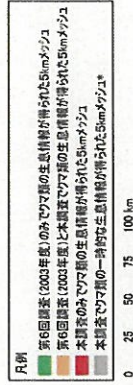 凡例
第6回調査(2003年度)のみでクマ類の生息情報が得られた5kmメッシュ
第6回調査(2003年度)と本調査でクマ類の生息情報が得られた5kmメッシュ
本調査のみでクマ類の生息情報が得られた5kmメッシュ
本調査でクマ類の一時的な生息情報が得られた5kmメッシュ*
0 25 50 75 100 km